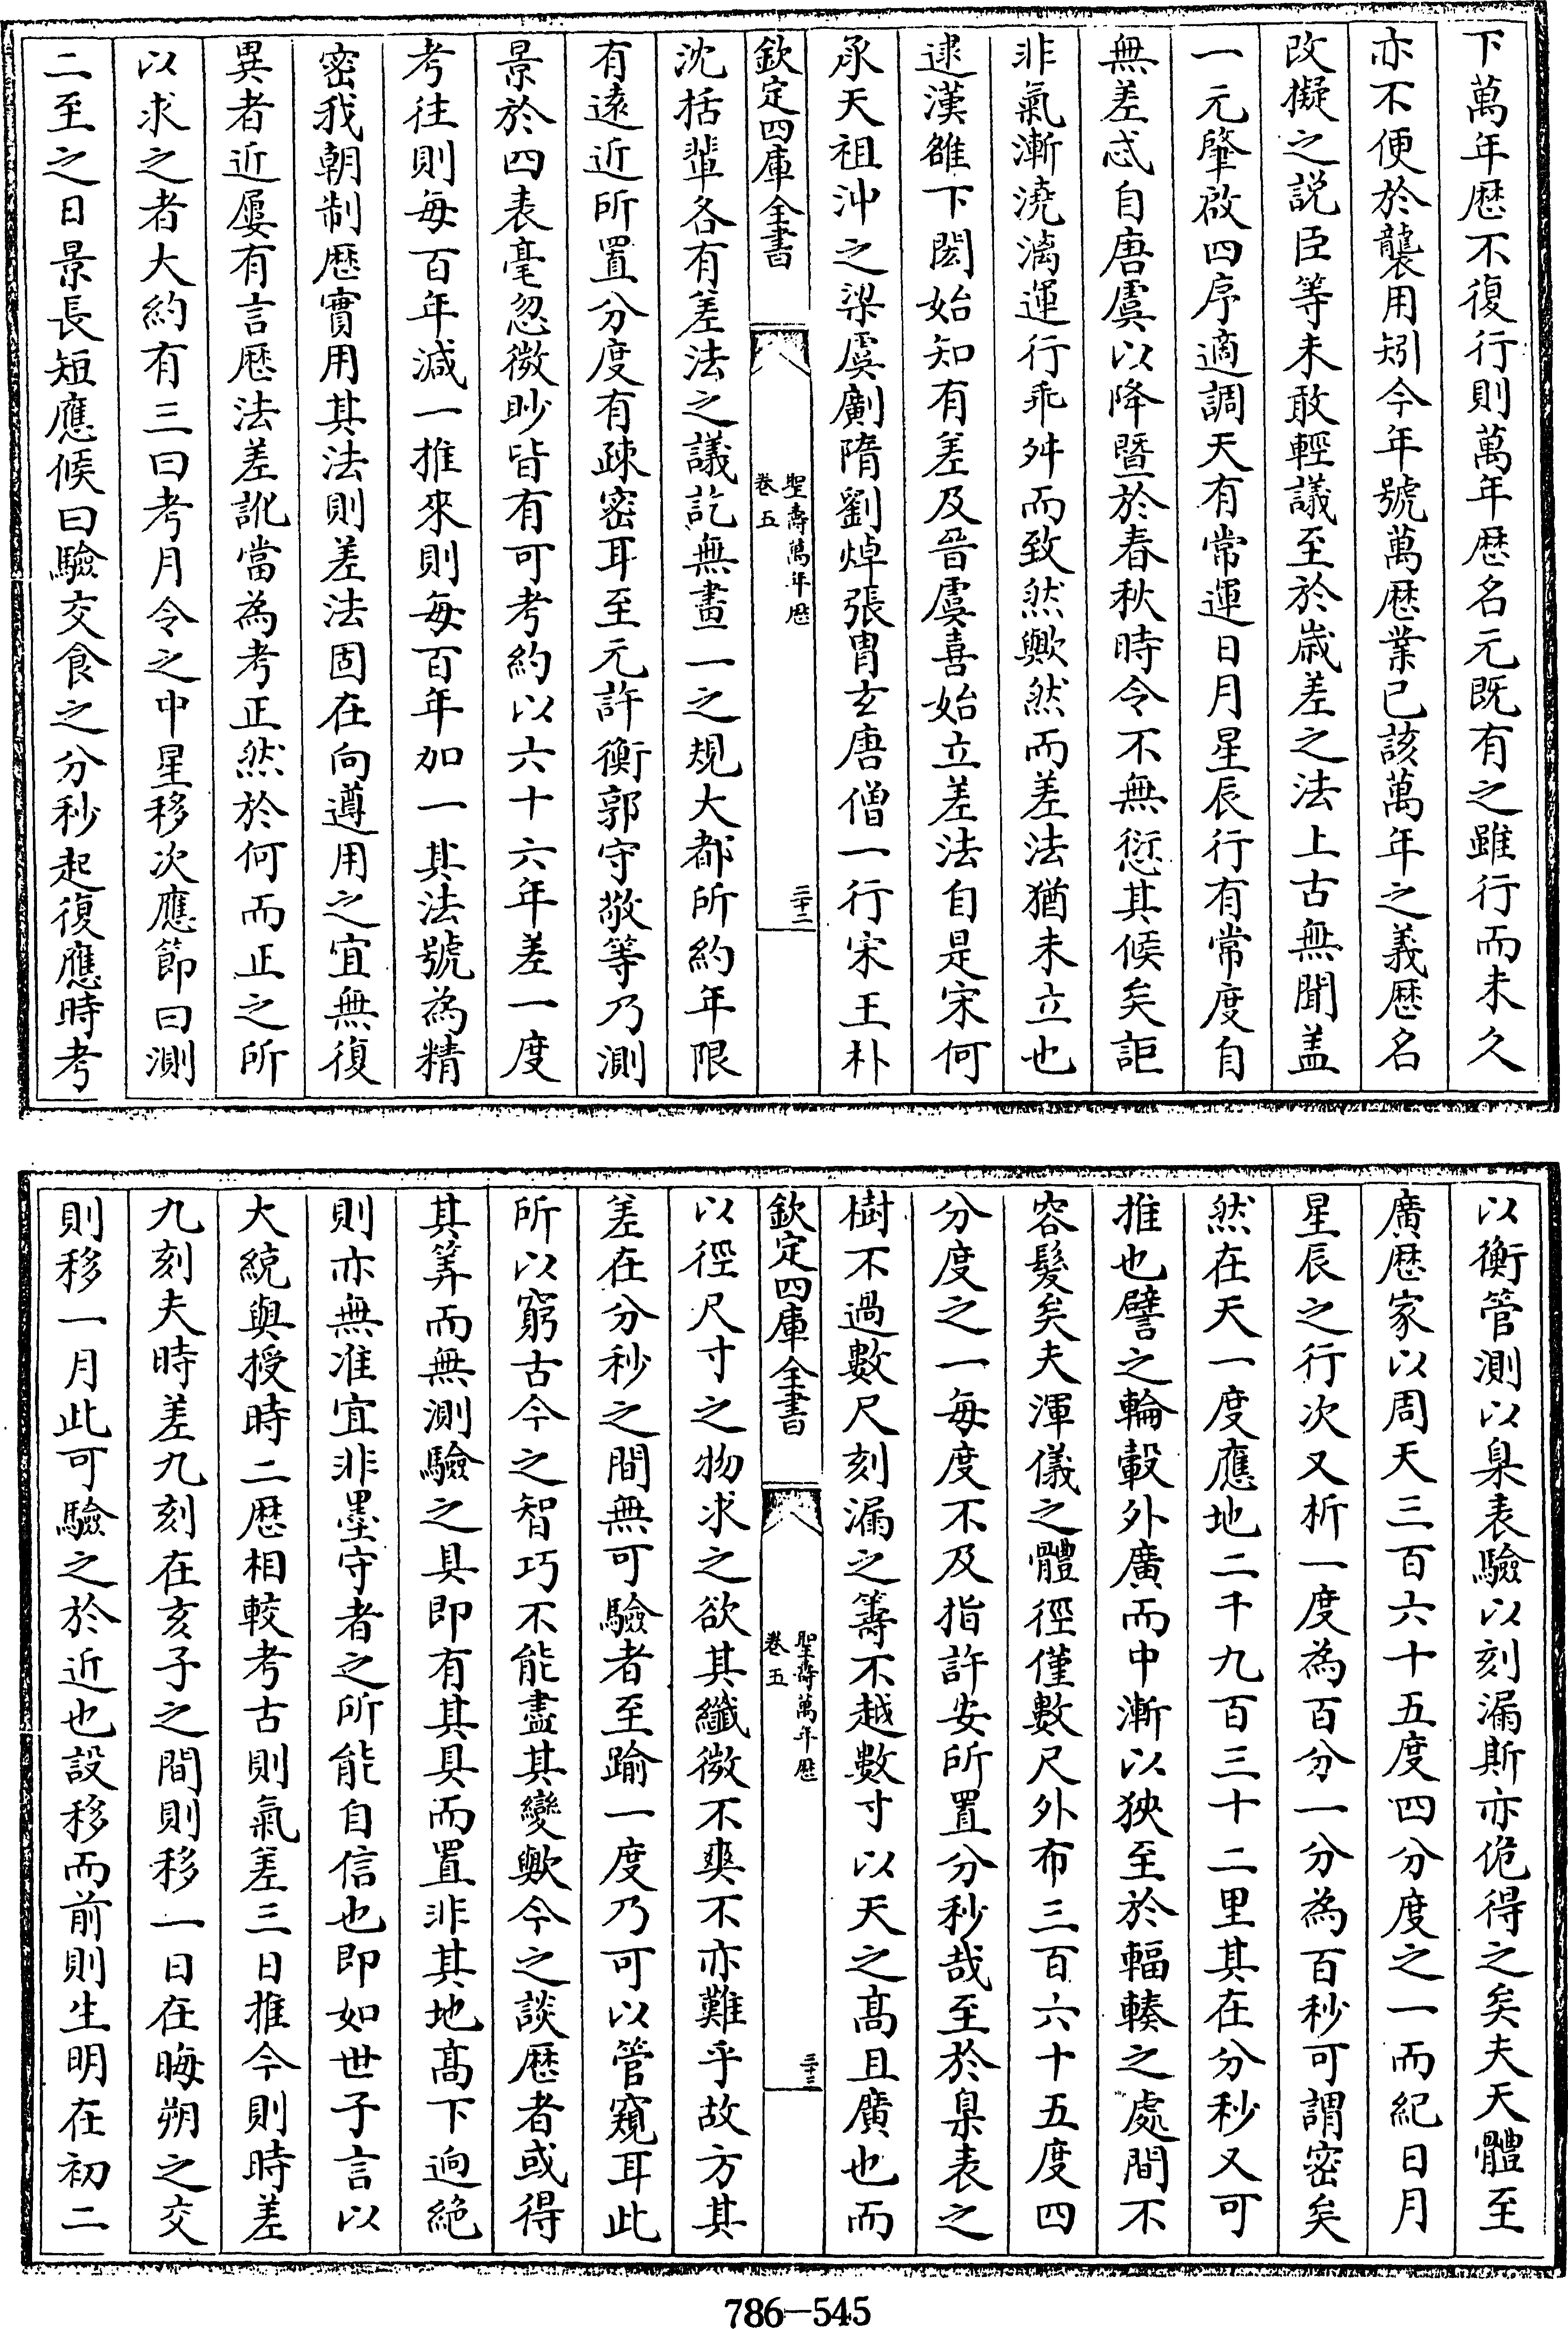 下萬年厯不復行則萬年厯名元既有之雖行而未久
亦不便於襲用矧今年號萬厯業已該萬年之義厯名
改擬之説臣等未敢輕議至於歳差之法上古無聞盖
一元肇啟四序適調天有常運日月星辰行有常度自
無差忒自唐虞以降暨於春秋時令不無愆其候矣詎
非氣漸澆漓運行乖舛而致然歟然而差法猶未立也
逮漢雒下閎始知有差及晉虞喜始立差法自是宋何
承天祖沖之梁虞劇隋劉焯張胄玄唐僧一行宋王朴
欽定四庫全書
聖壽萬年厯
卷五
三十二
沈括輩各有差法之議訖無畫一之規大都所約年限
有遠近所置分度有疎密耳至元許衡郭守敬等乃測
景於四表毫忽微眇皆有可考約以六十六年差一度
考往則每百年減一推來則每百年加一其法號為精
密我朝制厯實用其法則差法固在向遵用之宜無復
異者近屢有言厯法差訛當為考正然於何而正之所
以求之者大約有三曰考月令之中星移次應節曰測
二至之日景長短應候曰驗交食之分秒起復應時考
以衡管測以臬表驗以刻漏斯亦佹得之矣夫天體至
廣厯家以周天三百六十五度四分度之一而紀日月
星辰之行次又析一度為百分一分為百秒可謂密矣
然在天一度應地二千九百三十二里其在分秒又可
推也譬之輪轂外廣而中漸以狹至於輻輳之處間不
容髮矣夫渾儀之體徑僅數尺外布三百六十五度四
分度之一每度不及指許安所置分秒哉至於臬表之
樹不過數尺刻漏之籌不越數寸以天之髙且廣也而
欽定四庫全書
聖壽萬年厯
卷五
三十三
以徑尺寸之物求之欲其纖微不爽不亦難乎故方其
差在分秒之間無可驗者至踰一度乃可以管窺耳此
所以窮古今之智巧不能盡其變歟今之談厯者或得
其筭而無測驗之具即有其具而置非其地髙下逈絶
則亦無准宜非墨守者之所能自信也即如世子言以
大統與授時二厯相較考古則氣差三日推今則時差
九刻夫時差九刻在亥子之間則移一日在晦朔之交
則移一月此可驗之於近也設移而前則生明在初二
786-545